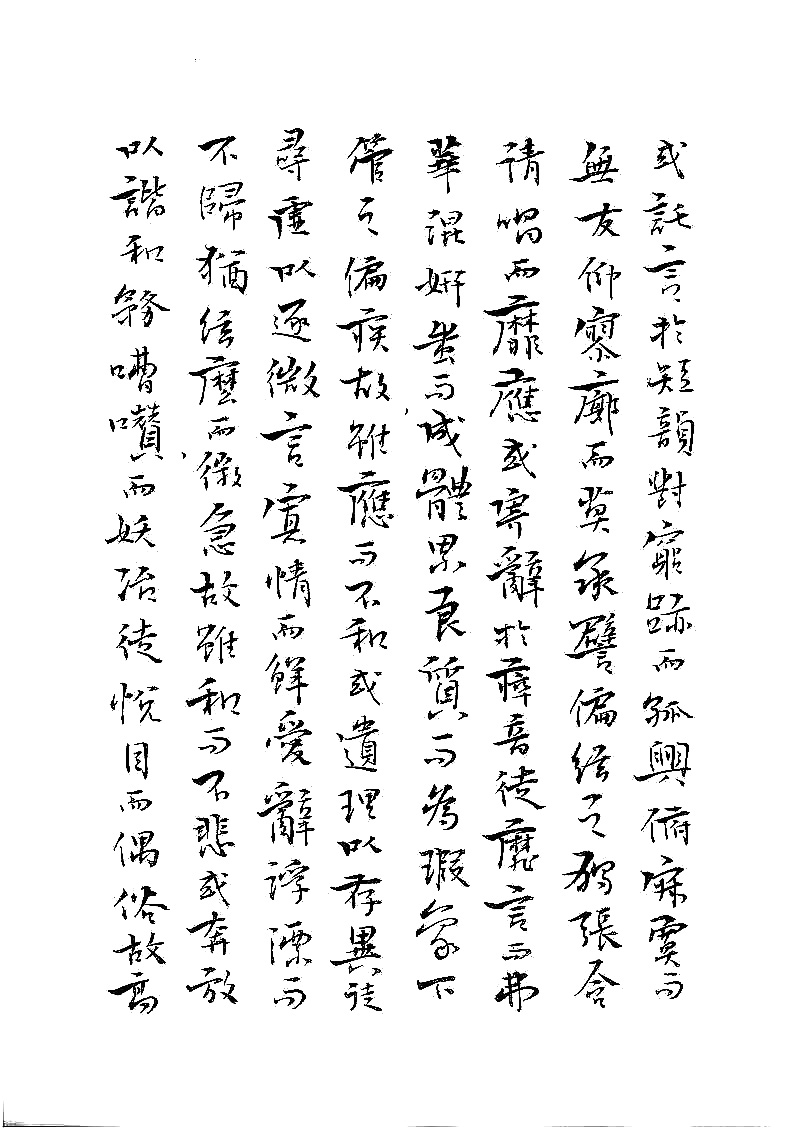 或託言於短韻對窮跡而孤興俯寂寞而
無友仰寥廓而莫承譬偏絃之獨張含
清唱而靡應或寄辭於瘁音徒靡言而弗
華混妍蚩而成體累良質而為瑕象下
管之偏疾故雖應而不和或遺理以存異徒
尋虛以逐微言寡情而鮮愛辭浮漂而
不歸猶絃麼而徽急故雖和而不悲或奔放
以諧和務嘈囋而妖冶徒悅目而偶俗故高